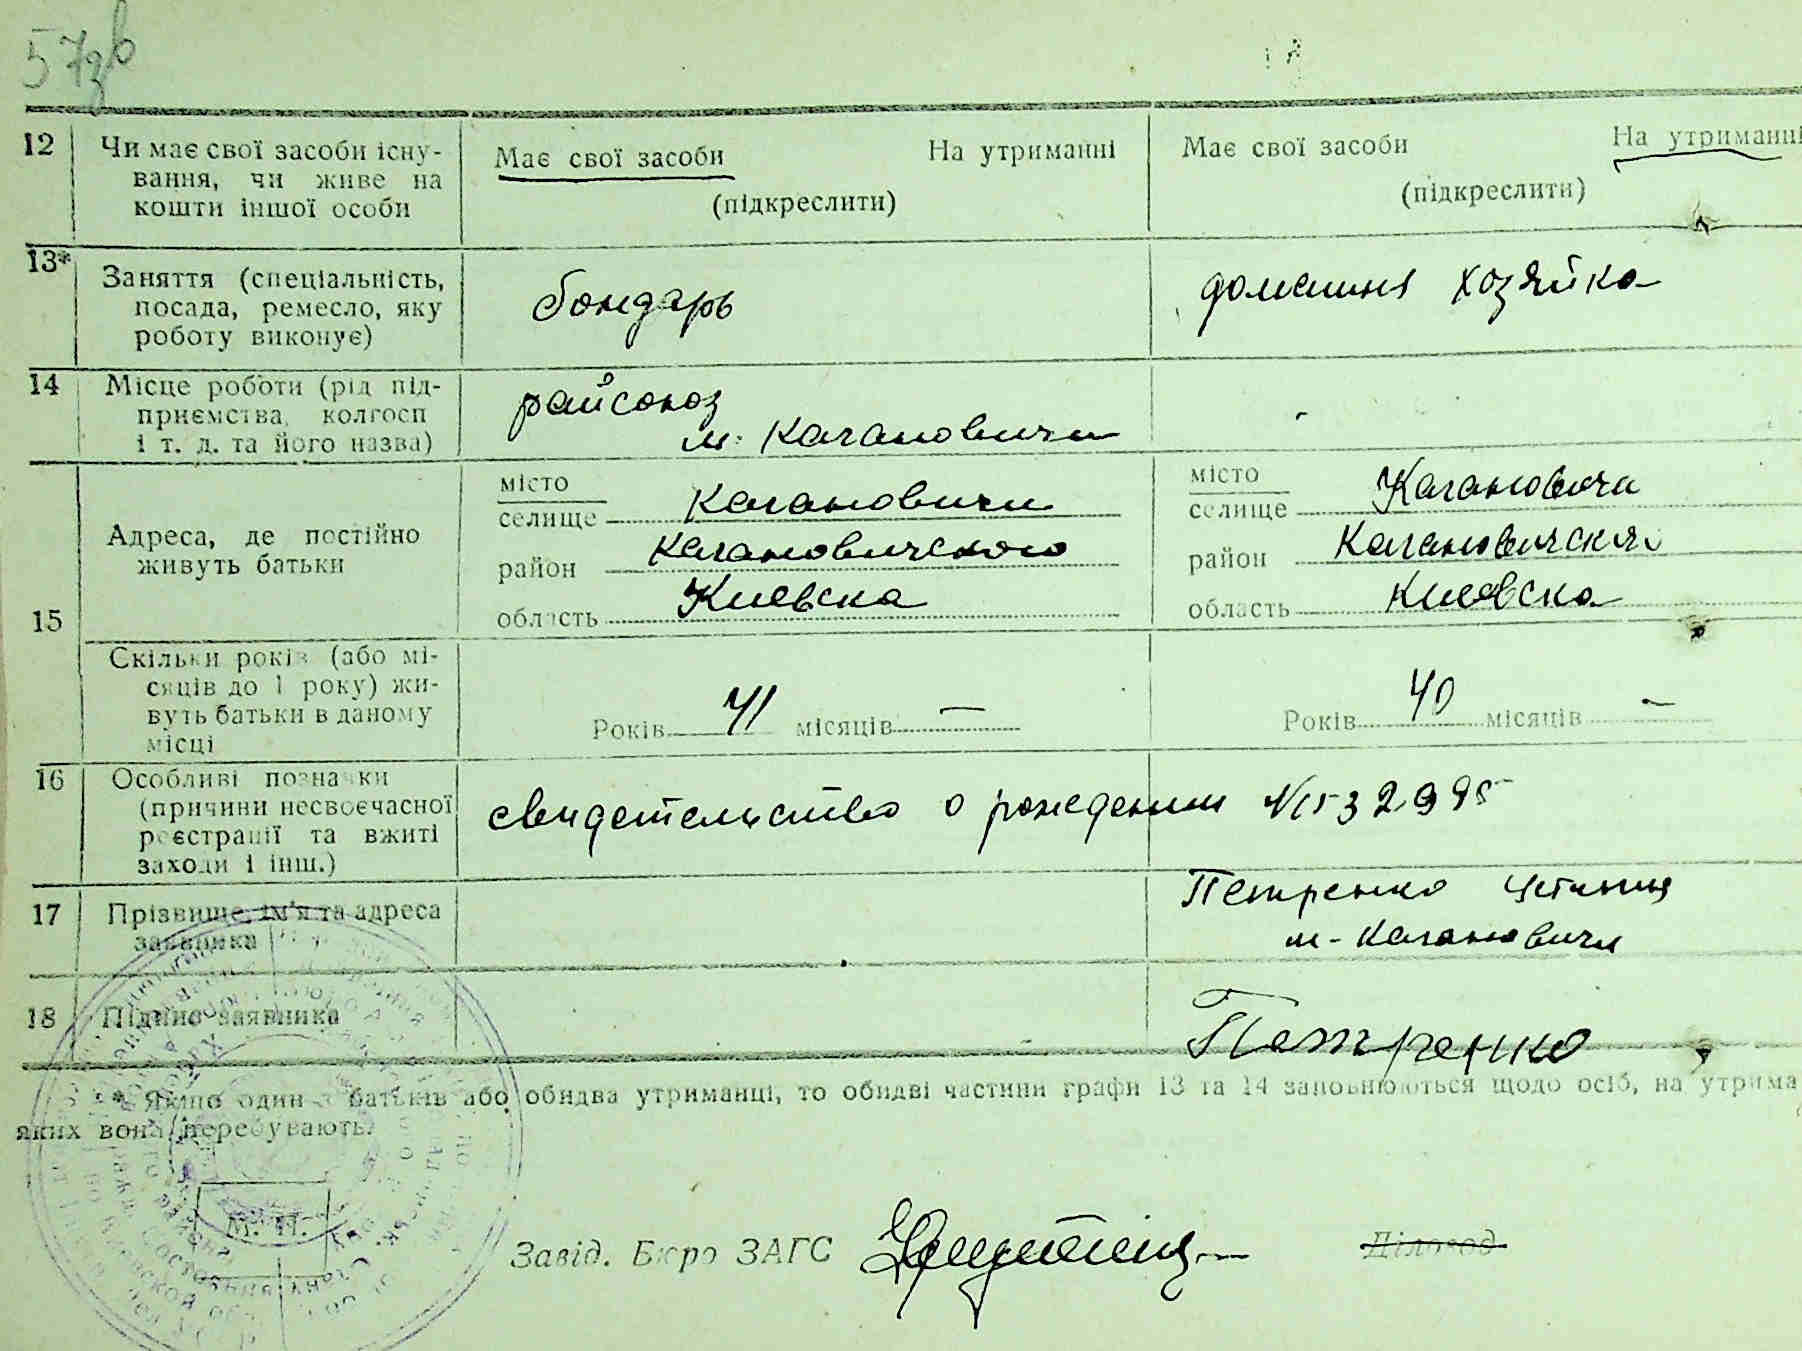 57зв
12 Чи має свої засоби існу- Має свої засоби На утриманні Має свої засоби На утриманні
вання, чи живе на (підкреслити) (підкреслити)
кошти іншої особи
13* Заняття (спеціальність, бондарь домашня хозяйка
посада, ремесло, яку
роботу виконує)
14 Місце роботи (рід під- райсоюз
приємства, колгосп м. Кагановичи
і т. д. та його назва)
15 Адреса, де постійно
живуть батьки
місто місто
селище Кагановичи селище Кагановичи
район Кагановичского район
область Киевска область Киевска
Скільки років (або мі-
сяців до 1 року) жи-
вуть батьки в даному
місці
Років 41 місяців — Років 40 місяців —
16 Особливі позначки
(причини несвоєчасної свидетельство о рождении
реєстрації та вжиті
заходи і інш.)
17 Прізвище, ім'я та адреса Петренко
заявника м- Кагановичи
18 Підпис заявника Петренко
* Якщо один з батьків або обидва утриманці, то обидві частини графи 13 та 14 заповнюються щодо осіб, на утрима
яких вони перебувають.
М. П.
Завід. Бюро ЗАГС Діловод